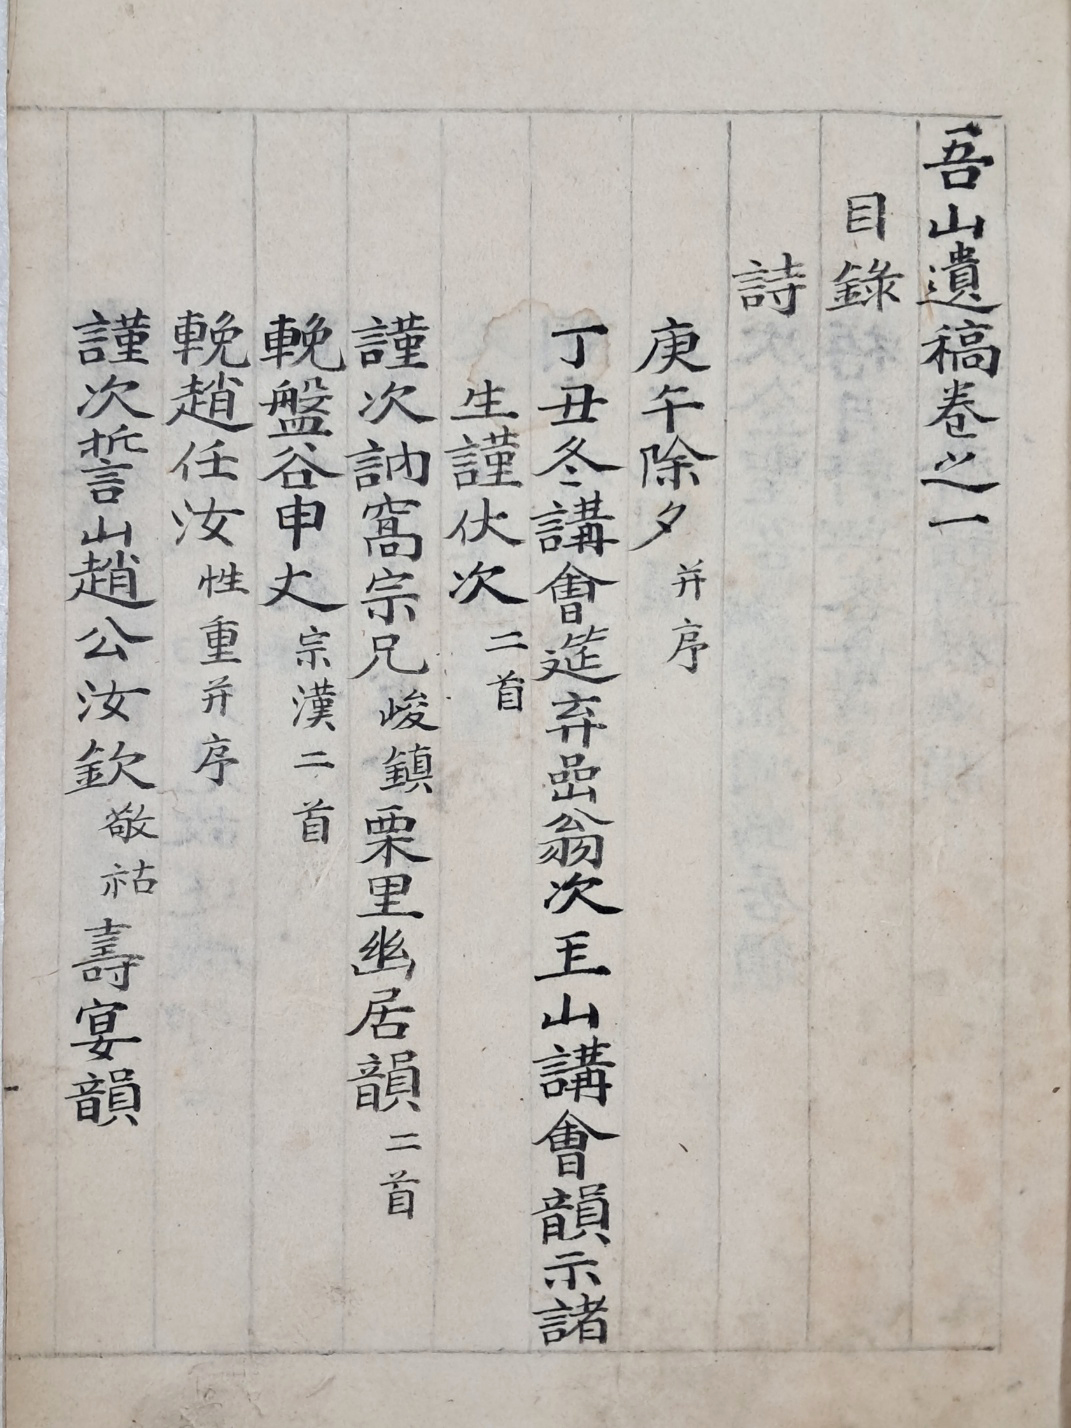 吾山遺稿卷之一
目錄
詩
庚午除夕 并序
丁丑冬講會筵弃嵒翁次玉山講會韻示諸
生謹伏次 二首
謹次訥窩宗兄 峻鎮 栗里幽居韻 二首
輓盤谷申丈 宗漢二首
輓趙任汝 性重并序
謹次誓山趙公汝欽 敬祜 壽宴韻